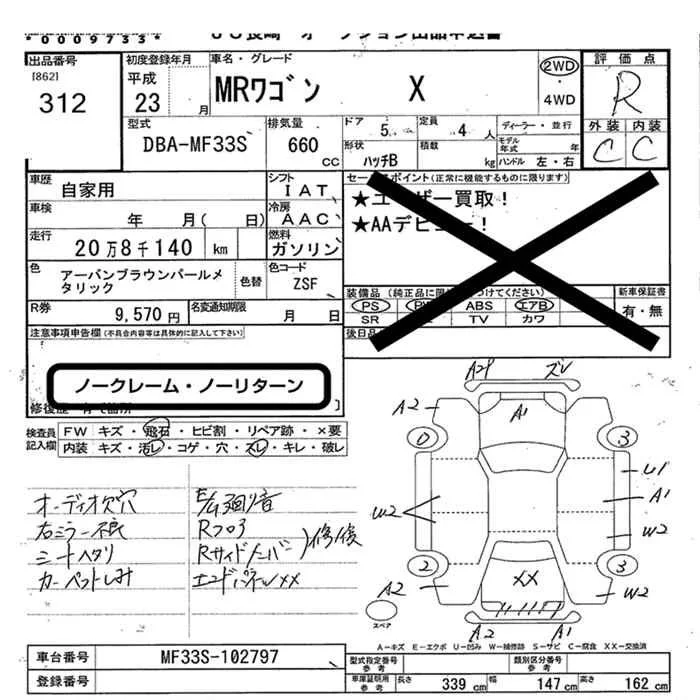 *0009733*
JU長崎 オークション出品申込書
出品番号
[862]
312
初度登録年月
平成
23 月
車名・グレード
MRワゴン X
2WD
・
4WD
評価点
R
外装 内装
C C
型式
DBA-MF33S
排気量
660
CC
ドア
5
定員
4 人
ディーラー・並行
モデル年式 年
形状
ハッチB
積載
kg
ハンドル 左・右
車歴
自家用
シフト
IAT
セールスポイント(正常に機能するものに限ります)
★ユーザー買取!
★AAデビュー!
車検
年 月( 日)
冷房
AAC
走行
20万8千140 km
燃料
ガソリン
色
アーバンブラウンパールメタリック
色替
色コード
ZSF
装備品 (純正品に限 つけてください)
PS ABS エアB
SR TV カワ
新車保証書
有・無
R券
9,570円
名変通知期限
月 日
後日品
注意事項申告欄(不具合内容等は具体的に記入して下さい)
ノークレーム・ノーリターン
修復歴
検査員
記入欄
FW キズ・飛石・ヒビ割・リペア跡・×要
内装 キズ・汚レ・コゲ・穴・スレ・キレ・破レ
オーディオ欠穴
右ミラー不良
シートヘタリ
カーペットしみ
E/G廻り音
Rフロア
Rサイドメンバー
修復
エンドパネルXX
A2 ズレ
A2 A1
0 3
U1
A1
W2 W2
2 3
A2 XX W2
A2 A1
スペア
A-キズ E-エクボ U-凹み W-補修跡 S-サビ C-腐食 XX-交換済
車台番号
MF33S-102797
登録番号
型式指定番号
参考
類別区分番号
参考
車庫証明用
参考
長さ 339 cm 幅 147 cm 高さ 162 cm